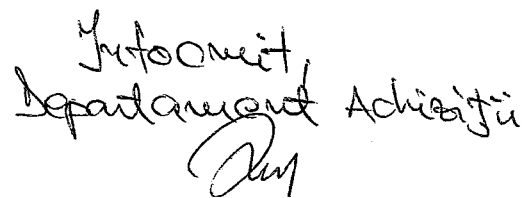 Întocmit,
Departament Achiziții